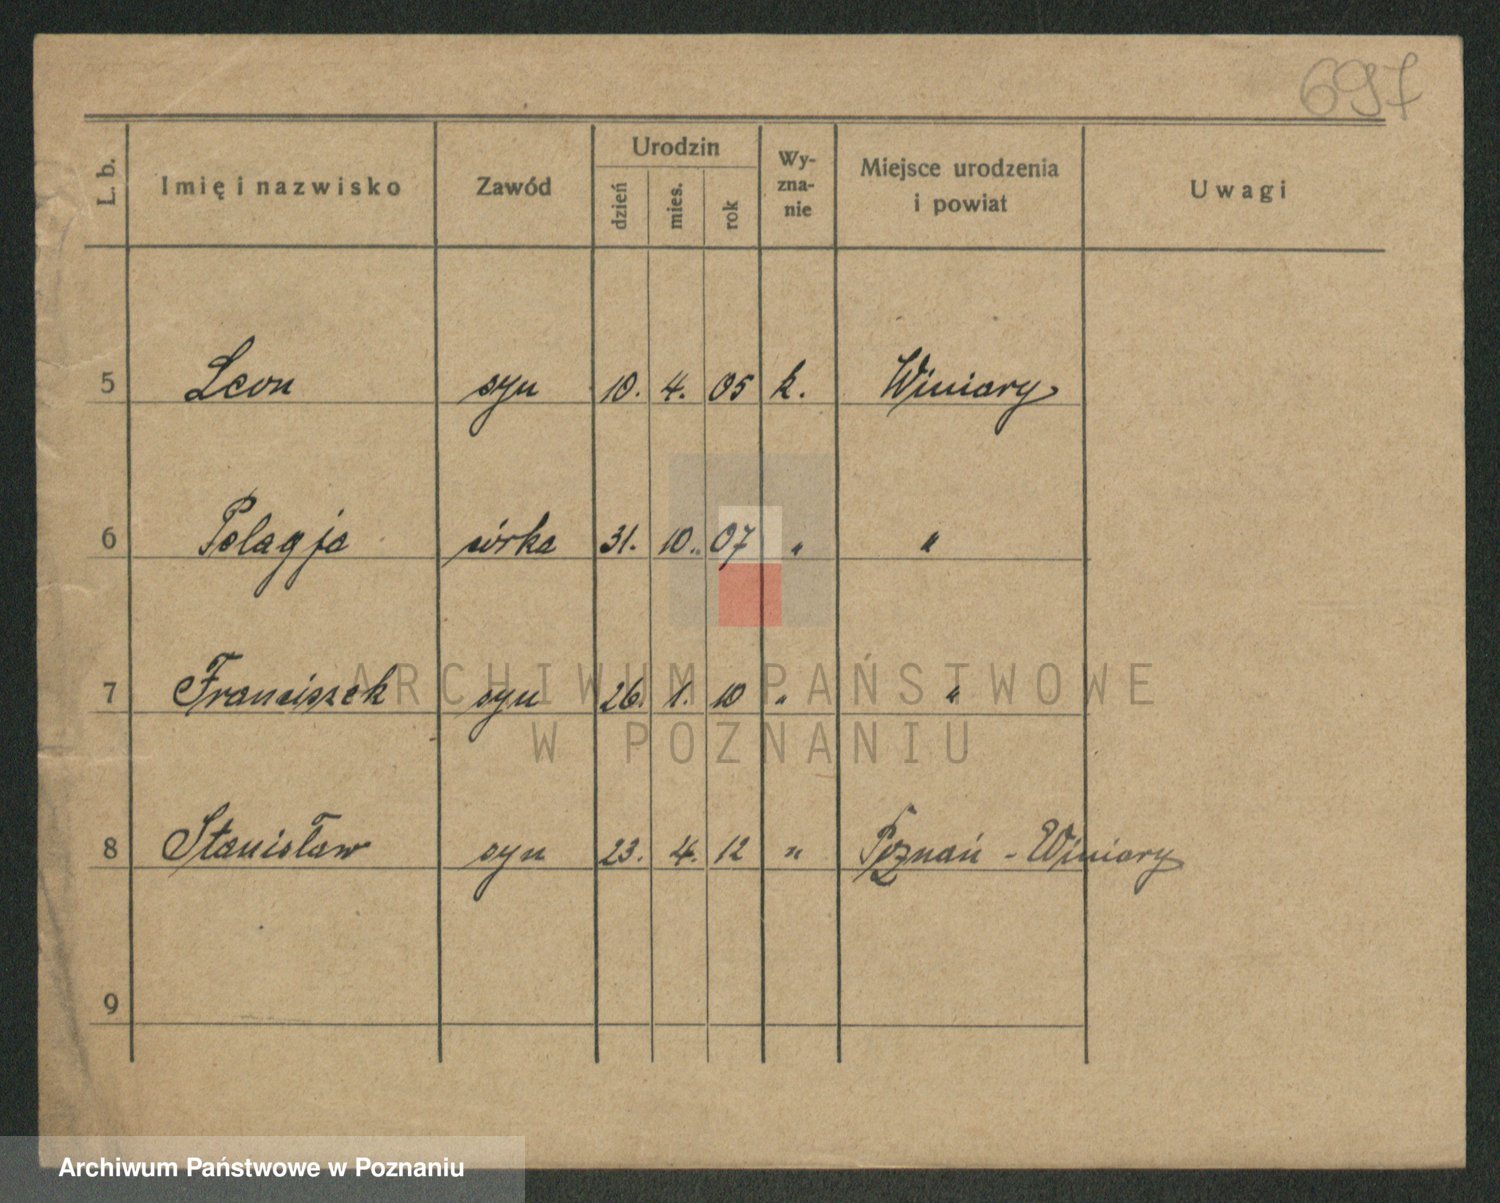 697
L. b. Imię i nazwisko Zawód Urodzin dzień mies. rok Wy-zna-nie Miejsce urodzenia i powiat Uwagi
5 Leon syn 10. 4. 05 k. Winiary
6 Pelagja córka 31. 10. 07 " "
7 Franciszek syn 26. 1. 10 " "
ARCHIWUM PAŃSTWOWE
W POZNANIU
8 Stanisław syn 23. 4. 12 " Poznań - Winiary
9
Archiwum Państwowe w Poznaniu